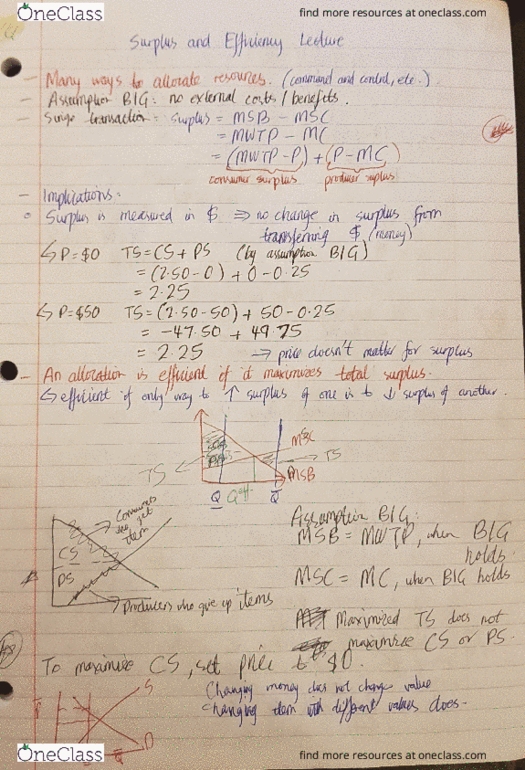 OneClass
find more resources at oneclass.com
Surplus and Efficiency Lecture
- Many ways to allocate resources. (command and control, etc.)
- Assumption BIG: no external costs / benefits.
- Single transaction: Surplus = MSB - MSC
= MWTP - MC
= (MWTP - P) + (P - MC)
consumer surplus producer surplus
- Implications:
Surplus is measured in $. ⇒ no change in surplus from
transferring $ (money)
↳ P = $0 TS = CS + PS (by assumption BIG)
= (2.50 - 0) + 0 - 0.25
= 2.25
↳ P = $50 TS = (2.50 - 50) + 50 - 0.25
= -47.50 + 49.75
= 2.25 → price doesn't matter for surplus
- An allocation is efficient if it maximizes total surplus.
↳ efficient if only way to ↑ surplus of one is to ↓ surplus of another.
MSC
TS
TS
MSB
Q Qeff Q
Consumers
who get
item
CS
PS
P
Producers who give up items
Assumption BIG:
MSB = MWTP, when BIG
holds.
MSC = MC, when BIG holds
Maximized TS does not
maximize CS or PS.
To maximize CS, set price to $0.
Changing money does not change value
Changing item with different values does.
S
D
Q
OneClass
find more resources at oneclass.com